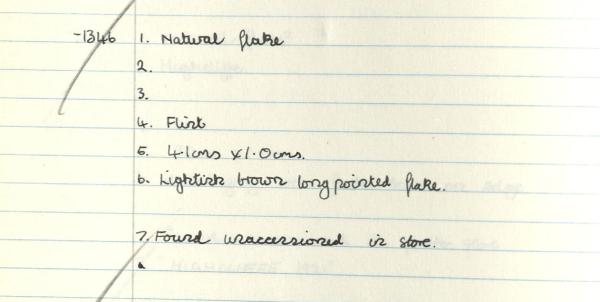 -1346 1. Natural flake
2.
3.
4. Flint
5. 4.1cms x 1.0cms.
6. Lightish brown long pointed flake.
7. Found unaccessioned in store.